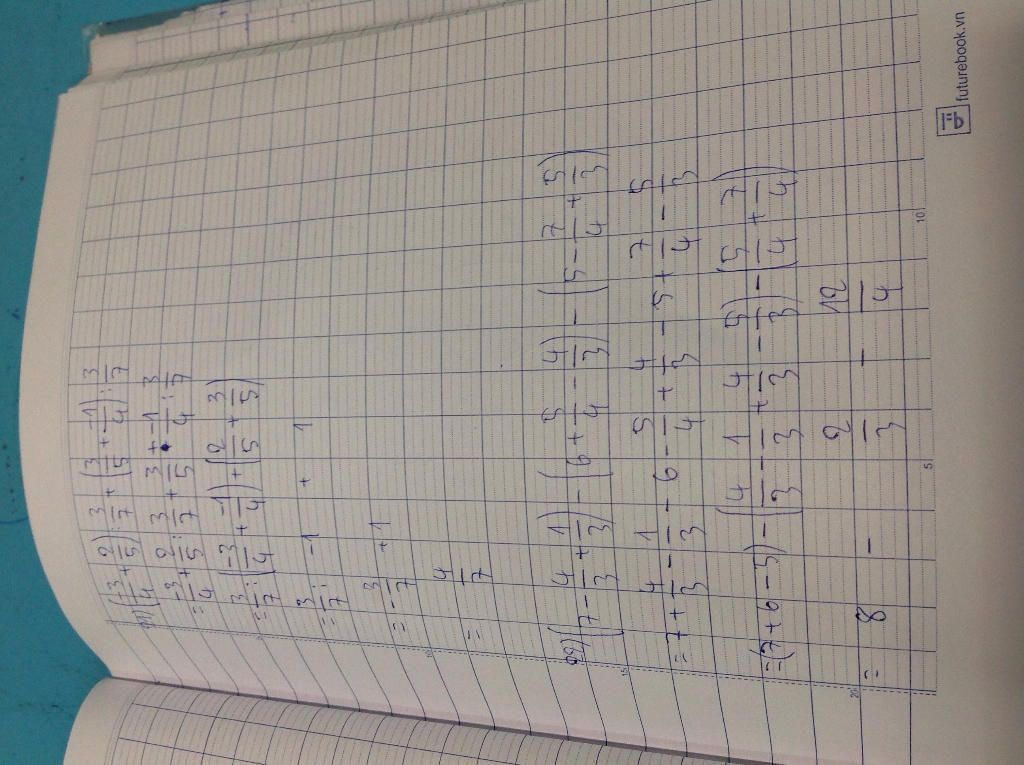 91) (-3/4 + 2/5) : 3/7 + (3/5 + -1/4) : 3/7
= -3/4 + 2/5 : 3/7 + 3/5 + -1/4 : 3/7
= 3/7 : (-3/4 + -1/4) + (2/5 + 3/5)
= 3/7 : -1 + 1
= - 3/7 + 1
= 4/7
92) (7 - 4/3 + 1/3) - (6 + 5/4 - 4/3) - (5 - 7/4 + 5/3)
= 7 + 4/3 - 1/3 - 6 - 5/4 + 4/3 - 5 + 7/4 - 5/3
= (7 + 6 - 5) - (4/3 - 1/3 + 4/3 - 5/3) - (5/4 + 7/4)
= 8 - 2/3 - 12/4
5
10
15
20
futurebook.vn